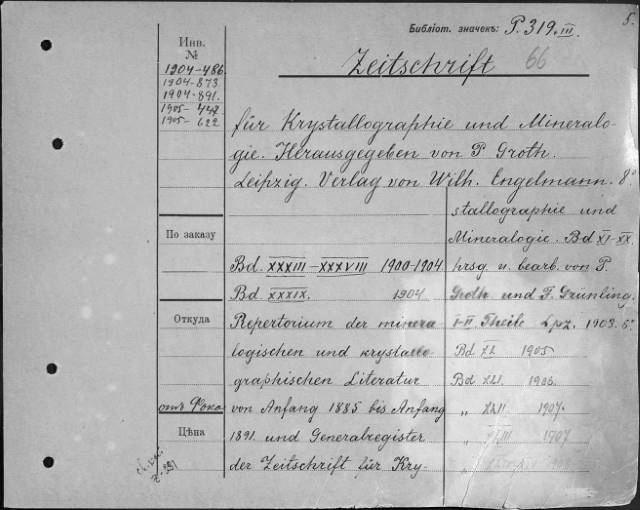 5.
Библіот. значекъ: P. 319. III.
Инв.
№
1904-486
1904-873
1904-891.
1905- 447
1905- 622
Zeitschrift 66
für Krystallographie und Mineralo-
gie. Herausgegeben von P. Groth.
Leipzig. Verlag von Wilh. Engelmann. 8°
По заказу
Bd. XXXIII-XXXVIII 1900-1904
Bd. XXXIX. 1904
Откуда
Repertorium der minera-
logischen und krystallo-
graphischen Literatur
отъ Фока
von Anfang 1885 bis Anfang
Цѣна
1891. und Generalregister
der Zeitschrift für Kry-
stallographie und
Mineralogie. Bd XI-XX.
hrsg. u. bearb. von P.
Groth und F. Grünling.
I-II Theile Lpz. 1903.
Bd XL 1905
Bd XLI. 1906.
„ XLII 1907.
„ XLIII 1907